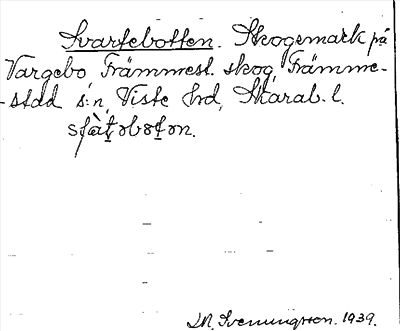 Svartebotten. Skogsmark på
Vargebo, Främmest. skog, Främme-
-stad s:n, Viste hrd, Skarab. l.
sfàt̠əbot̠ən.
M. Svenungsson. 1939.